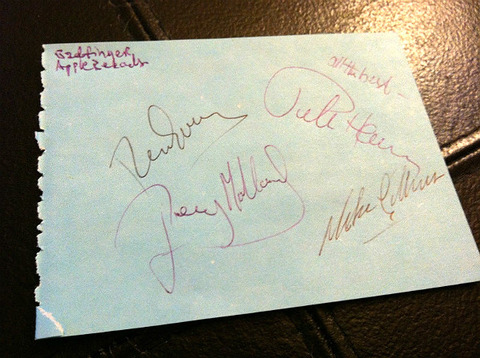 Badfinger,
Apple Records
All the best –
Pete Ham
Joey Molland
Mike Gibbins